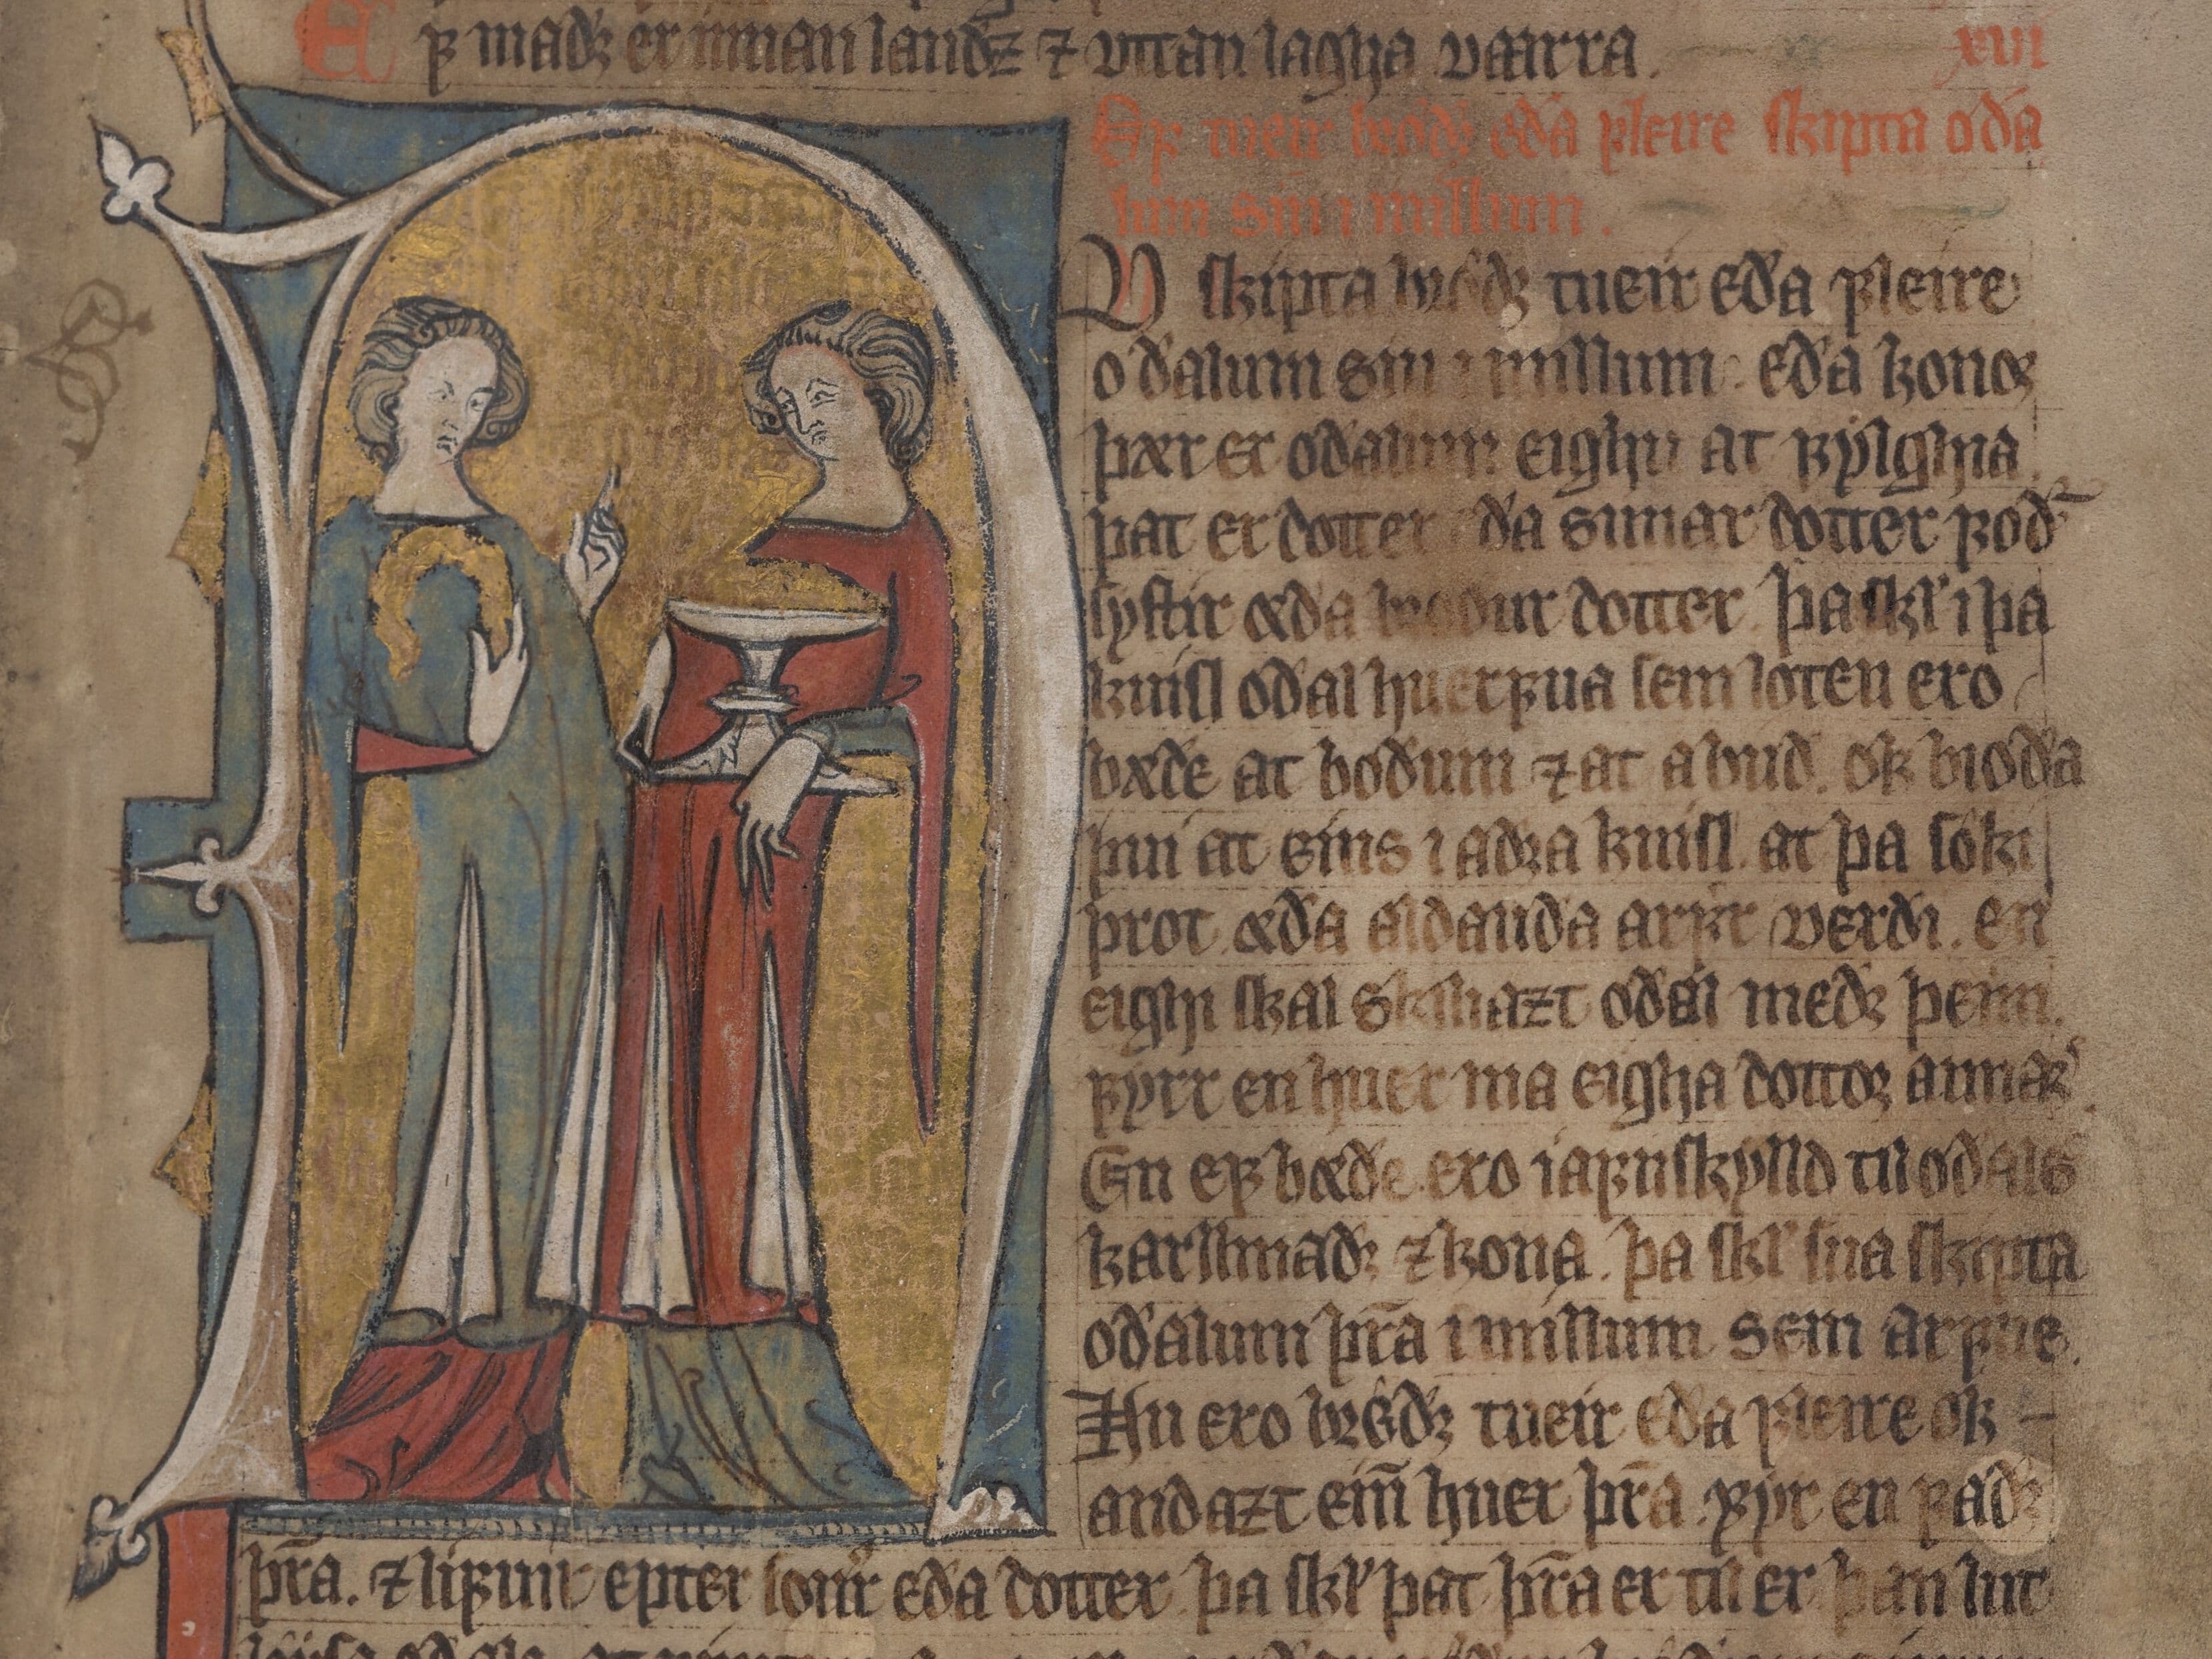 ꝼ madꝛ er innan landz ⁊ vttan lagha vaarra.
xvii
Eꝼ tueir brǿdꝛ eða ꝼleire skipta oða
lum sin i millium.
Nv skipta brǿðꝛ tueir eða ꝼleire
oðalum sin i millium. eða konoꝛ
þær er oðalum eighu at ꝼylghia
þat er dotter eða sunar dotter ꝼoð
systir æða broður dotter. þa skl' i þa
kuisl oðal huerꝼua sem loten ero
bæðe at boðum ⁊ at abuð. ok bioða
hui at eins i aðꝛa kuisl. at þa søki
þrot æða aldauða arꝼr verði. en
eighi skal skiliazt oðal með þeim.
ꝼyrr en huer ma eigha dottoꝛ annars.
En eꝼ bæðe ero iaꝼnskylld til oðals
karllmaðꝛ ⁊ kona. þa skl' sua skipta
oðalum þr̄a i millium sem arꝼue.
Nu ero brǿðꝛ tueir eða ꝼleire ok
andazt ein̄ huer þr̄a. ꝼyr en ꝼaðꝛ
þr̄a. ⁊ liꝼuir epter sonr eða dotter. þa skl' þat þr̄a er til er þan lut